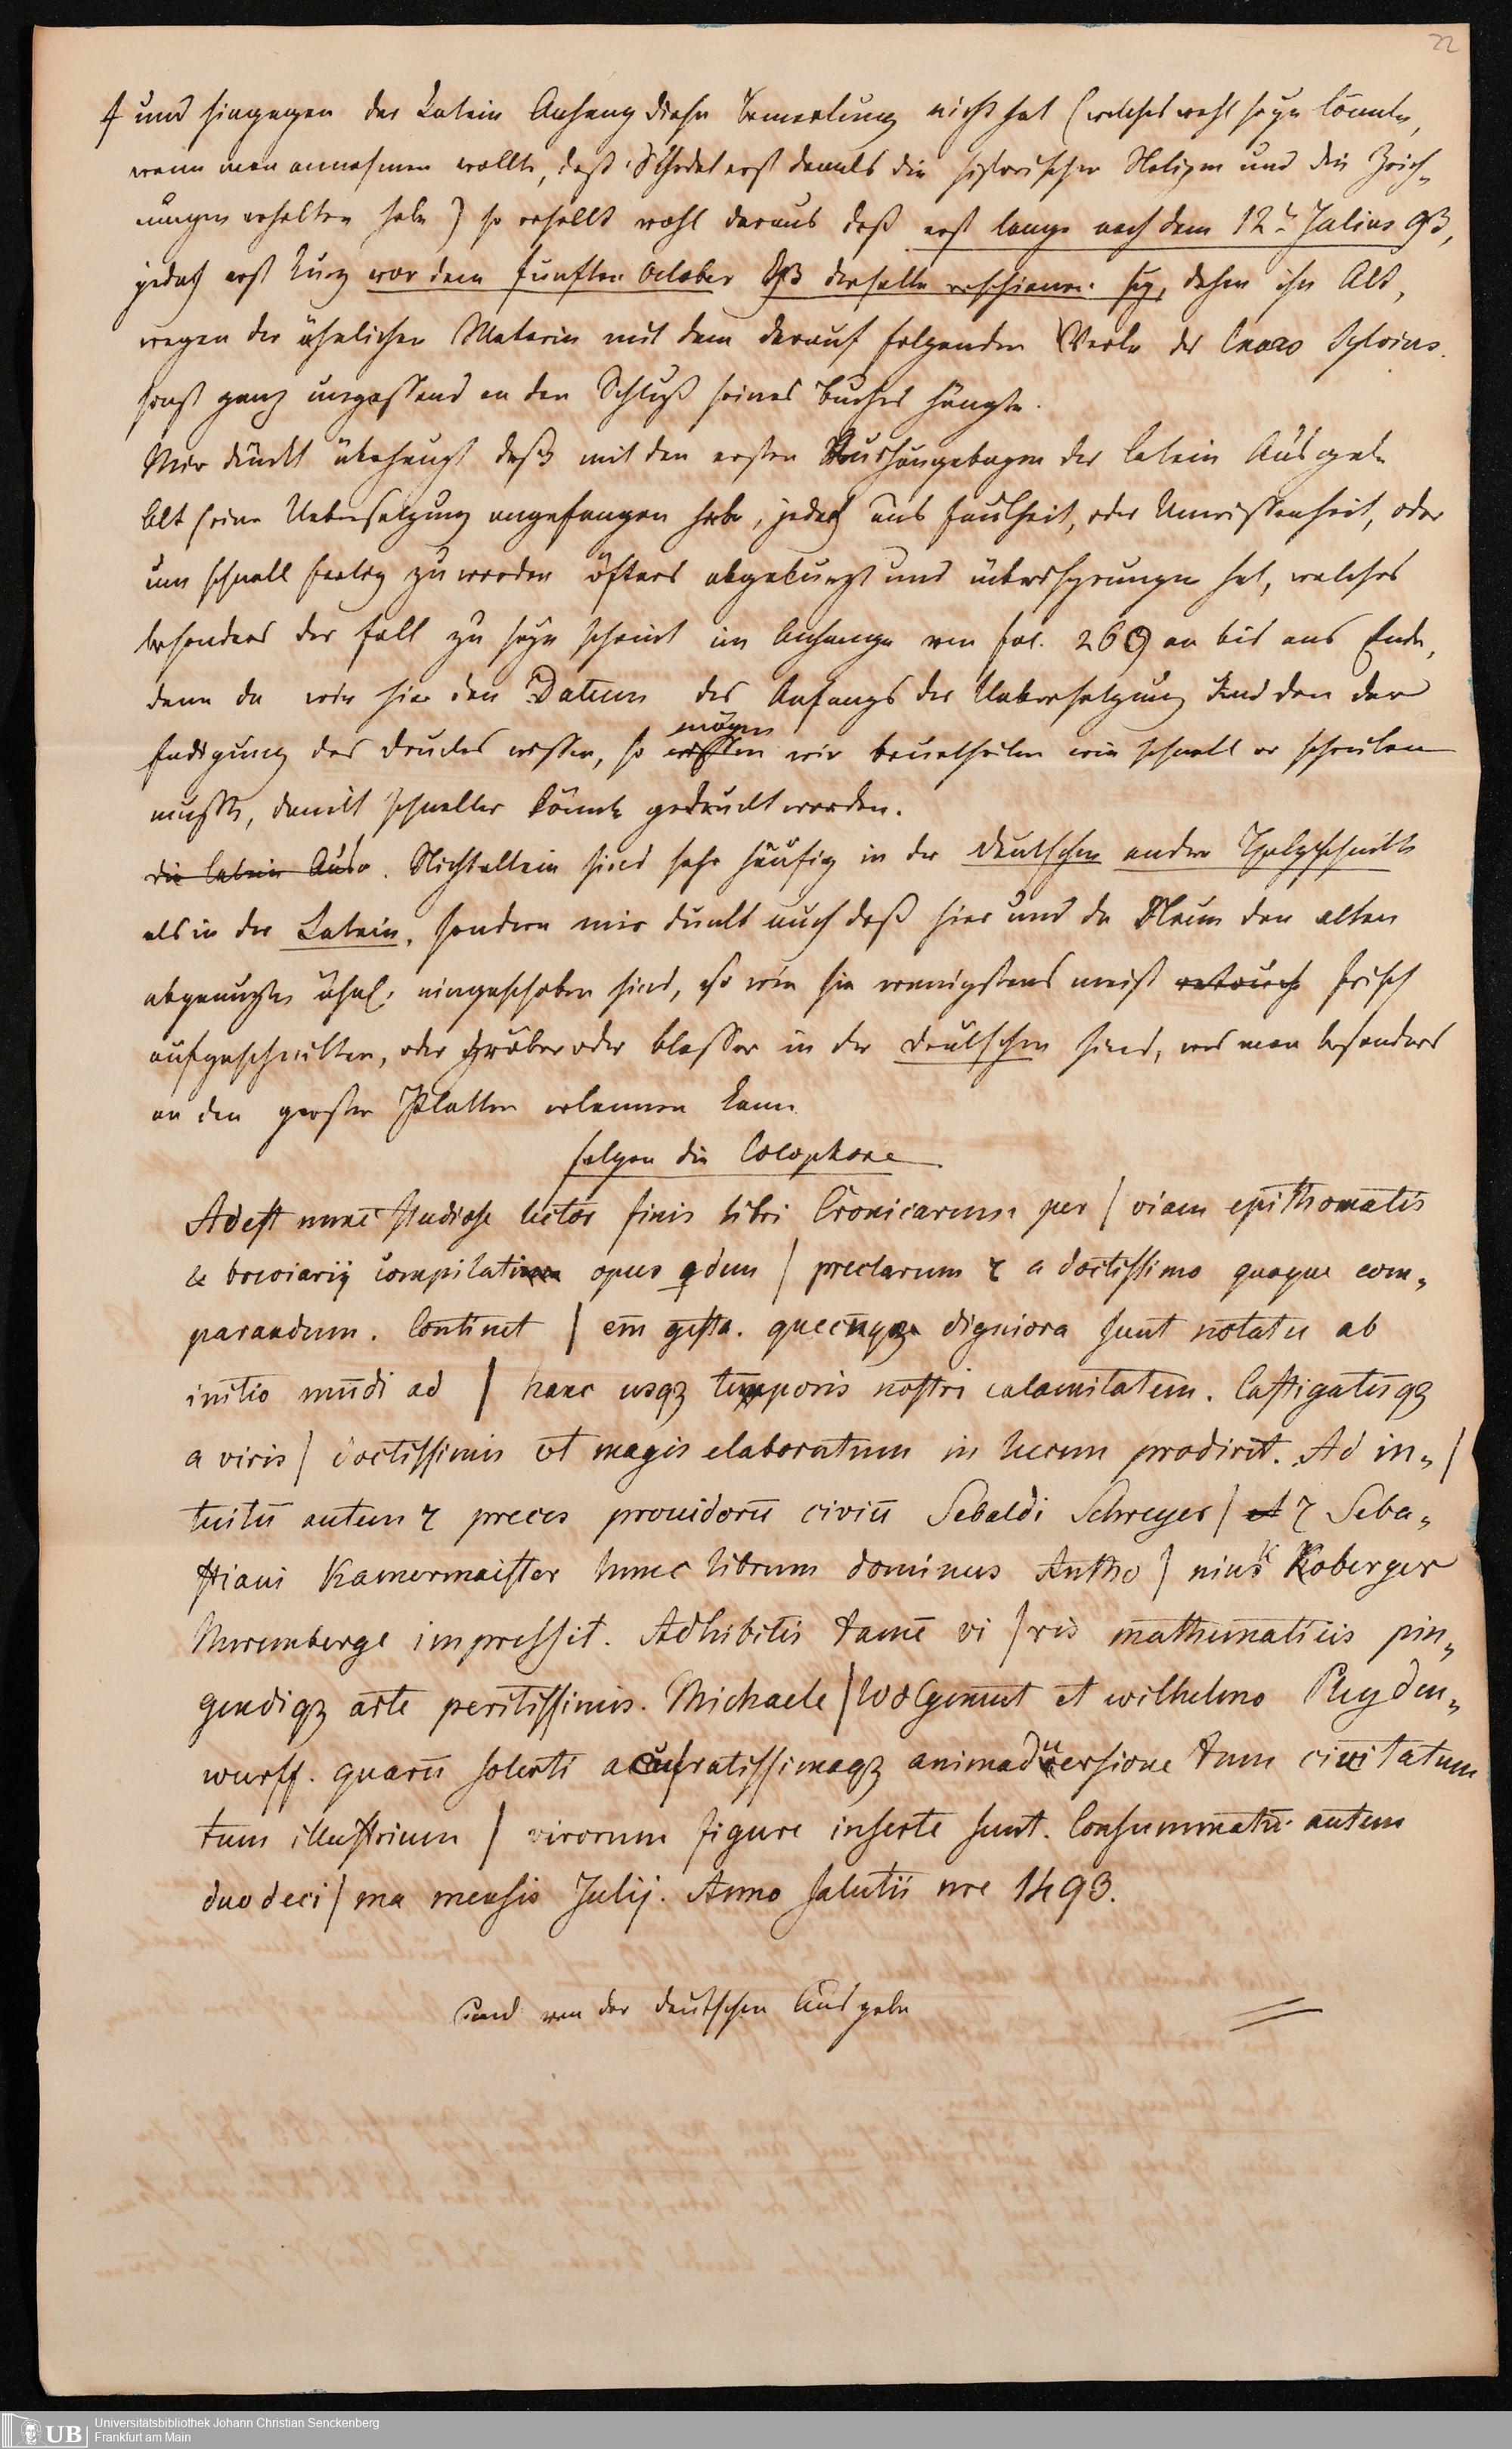 22
und hingegen der Latein Anhang diese Bemerkung nicht hat (welches wohl seyn könnte,
wenn man annehmen wollte, daß Schedel erst damals die historischen Notizen und die Zeich-
nungen erhalten habe) so erhellt wohl daraus daß erst lange nach dem 12t Julius 93,
jedoch erst kurz vor dem fünften October 93 derselbe erschienen sey, daher ihn Alt,
wegen der ähnlichen Materie mit dem darauf folgenden Werke des Eneas Sylvius
sonst ganz unpassend an den Schluß seines Buches hängte.
Mir dünkt überhaupt daß mit den ersten Aushängebogen der latein Ausgabe
Alt seine Uebersetzung angefangen habe, jedoch aus Faulheit, oder Unwissenheit, oder
um schnell fertig zu werden öfters abgekürzt und übersprungen hat, welches
besonders der Fall zu seyn scheint im Anhange von fol. 269 an bis ans Ende,
denn da wir hier den Datum des Anfangs der Uebersetzung und den der
mögen
Endigung des Druckes wissen, so wissen wir beurtheilen wie schnell er schreiben
mußte, damit schneller könnte gedruckt werden.
die latein Ausg. Nicht allein sind sehr häufig in der deutschen andre Holzschnitte
als in der Latein, sondern mir dünkt auch daß hier und da Neue den alten
abgenutzten ähnl: eingeschoben sind, so wie sie wenigstens meist retouch frisch
aufgeschnitten, oder gröber oder blasser in der deutschen sind, was man besonders
an den großen Platten erkennen kann
folgen die Colophone
Adest nunc studiose lector finis libri Cronicarum per / viam epithomatis
& breviarij compilati opus qdem / preclarum ⁊ a doctissimo quoque com-
parandum. Continet / em̄ gesta. quecūqȝ digniora sunt notatu ab
initio mūdi ad / hanc usqȝ temporis nostri calamitatem. Castigatūqȝ
a viris / doctissimis vt magis elaboratum in lucem prodiret. Ad in- /
tuitū autem ⁊ preces prouidorū civiū Sebaldi Schreyer / et ⁊ Seba-
stiani Kamermaister hunc librum dominus Antho / nius Koberger
Nuremberge impressit. Adhibitis tamē vi / ris mathematicis pin-
gendiqȝ arte peritissimis. Michaele / Wolgemut et wilhelmo Pleyden-
wurff. quarū solerti acu/ratissimaqȝ animaduersione tum civitatum
tum illustrium / virorum figure inserte sunt. Consummatū autem
duodeci / ma mensis Julij. Anno salutis nre 1493.
und von der deutschen Ausgabe
UB
Universitätsbibliothek Johann Christian Senckenberg
Frankfurt am Main